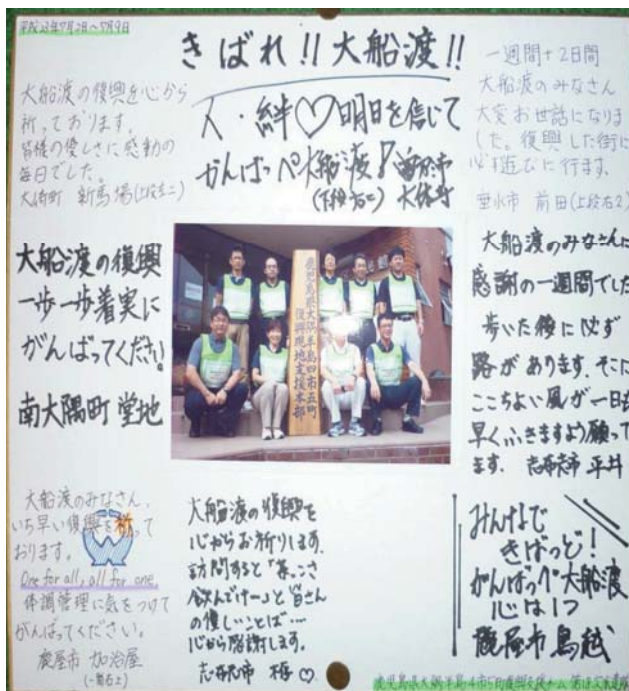 平成23年7月2日~7月9日
きばれ!!大船渡!!
大船渡の復興を心から
祈っております。
皆様の優しさに感動の
毎日でした。
大崎町 新馬場(上段左二)
人・絆♡明日を信じて
がんばっぺ大船渡!
(下段右二)
一週間+2日間
大船渡のみなさん
大変お世話になりま
した。復興した街に
必ず遊びに行きます。
垂水市 前田(上段右2)
大船渡の復興
一歩一歩着実に
がんばってください。
南大隅町 堂地
鹿児島県大隅半島四市五町
復興現地支援本部
大船渡のみなさんに
感謝の一週間でした
歩いた後に必ず
路があります。そこに
ここちよい風が一日も
早くふきますよう願って
ます。 志布志市 平井
大船渡のみなさん、
いち早い復興を祈って
おります。
One for all, all for one.
体調管理に気をつけて
がんばってください。
鹿屋市 加治屋
大船渡の復興を
心からお祈りします。
訪問すると「茶っこさ
飲んでけー」と皆さん
の優しいことば…
心から感謝します。
志布志市
みんなで
きばっど!
がんばっぺ大船渡
心は1つ
鹿屋市 鳥越
鹿児島県大隅半島4市5町復興支援チーム